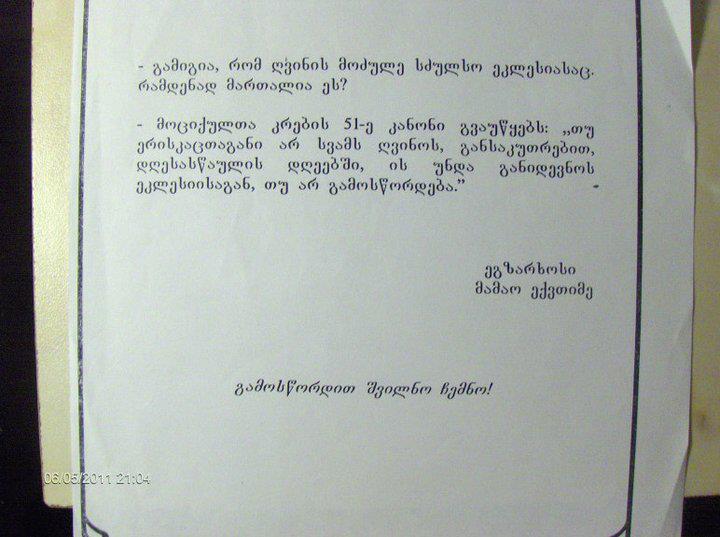 - გამიგია, რომ ღვინის მოძულე სძულსო ეკლესიასაც.
რამდენად მართალია ეს?
- მოციქულთა კრების 51-ე კანონი გვაუწყებს: „თუ
ერისკაცთაგანი არ სვამს ღვინოს, განსაკუთრებით,
დღესასწაულის დღეებში, ის უნდა განიდევნოს
ეკლესიისაგან, თუ არ გამოსწორდება.”
ეგზარხოსი
მამაო ექვთიმე
გამოსწორდით შვილნო ჩემნო!
06.05/2011 21:04